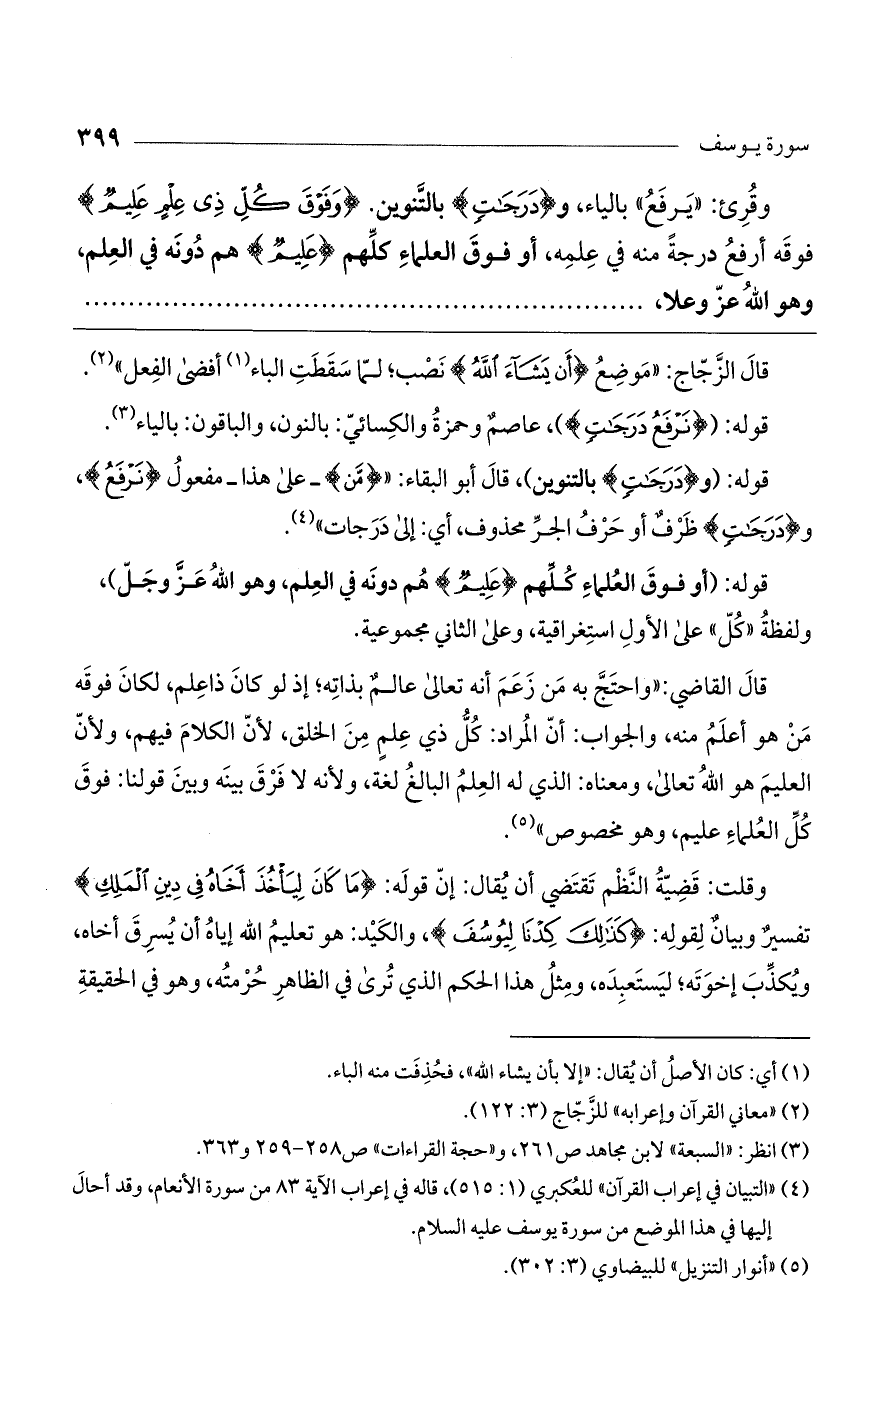 سورة يوسف ٣٩٩
وقُرِئ: «يَرفَعُ» بالياء، و﴿دَرَجَٰتٖ﴾ بالتَّنوين. ﴿وَفَوۡقَ كُلِّ ذِي عِلۡمٍ عَلِيمٞ﴾
فوقَه أرفعُ درجةً منه في عِلمِه، أو فوقَ العلماءِ كلِّهم ﴿عَلِيمٞ﴾ هم دُونَه في العِلم،
وهو اللهُ عزّ وعلا، ................................................................
قالَ الزَّجّاج: «مَوضِعُ ﴿أَن يَشَآءَ ٱللَّهُ﴾ نَصْب؛ لـمّا سَقَطَتِ الباء(١) أفضىٰ الفِعل»(٢).
قوله: (﴿نَرۡفَعُ دَرَجَٰتٖ﴾)، عاصمٌ وحمزةُ والكِسائيّ: بالنون، والباقون: بالياء(٣).
قوله: (و﴿دَرَجَٰتٖ﴾ بالتنوين)، قالَ أبو البقاء: «﴿مَّن﴾ ـ علىٰ هذا ـ مفعولُ ﴿نَرۡفَعُ﴾،
و﴿دَرَجَٰتٖ﴾ ظَرْفٌ أو حَرْفُ الجـرِّ محذوف، أي: إلىٰ دَرَجات»(٤).
قوله: (أو فوقَ العُلماءِ كُلِّهم ﴿عَلِيمٞ﴾ هُم دونَه في العِلم، وهو اللهُ عَزَّ وجَلّ)،
ولفظةُ «كُلّ» علىٰ الأولِ استِغراقية، وعلىٰ الثاني مجموعية.
قالَ القاضي: «واحتَجَّ به مَن زَعَمَ أنه تعالىٰ عالـمٌ بذاتِه؛ إذ لو كانَ ذاعِلم، لكانَ فوقَه
مَنْ هو أعلَمُ منه، والجواب: أنّ المُراد: كُلُّ ذي عِلمٍ مِنَ الخلق، لأنّ الكلامَ فيهم، ولأنّ
العليمَ هو اللهُ تعالىٰ، ومعناه: الذي له العِلمُ البالغُ لغة، ولأنه لا فَرْقَ بينَه وبينَ قولنا: فوقَ
كُلِّ العُلماءِ عليم، وهو مخصوص»(٥).
وقلت: قَضِيّةُ النَّظْم تَقتَضي أن يُقال: إنّ قولَه: ﴿مَا كَانَ لِيَأۡخُذَ أَخَاهُ فِي دِينِ ٱلۡمَلِكِ﴾
تفسيرٌ وبيانٌ لِقولِه: ﴿كَذَٰلِكَ كِدۡنَا لِيُوسُفَ﴾، والكَيْد: هو تعليمُ الله إياهُ أن يُسرِقَ أخاه،
ويُكذِّبَ إخوَتَه؛ ليَستَعبِدَه، ومِثلُ هذا الحكم الذي تُرىٰ في الظاهرِ حُرْمتُه، وهو في الحقيقةِ
(١) أي: كان الأصلُ أن يُقال: «إلا بأن يشاء الله»، فحُذِفَت منه الباء.
(٢) «معاني القرآن وإعرابه» للزَّجّاج (٣: ١٢٢).
(٣) انظر: «السبعة» لابن مجاهد ص٢٦١، و«حجة القراءات» ص٢٥٨-٢٥٩ و٣٦٣.
(٤) «التبيان في إعراب القرآن» للعُكبري (١: ٥١٥)، قاله في إعراب الآية ٨٣ من سورة الأنعام، وقد أحالَ
إليها في هذا الموضع من سورة يوسف عليه السلام.
(٥) «أنوار التنزيل» للبيضاوي (٣: ٣٠٢).